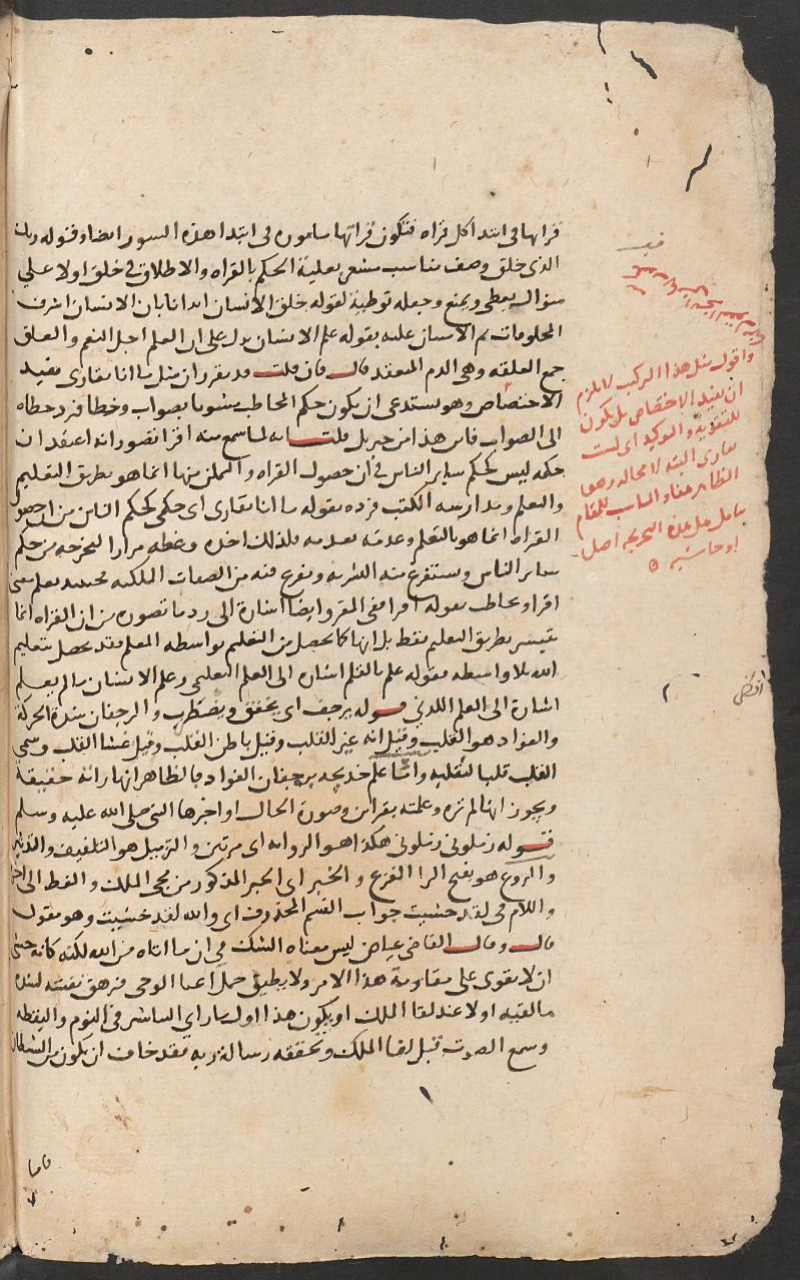 قراتها فى ابتدا كل قراه فتكون قراتها مامور فى ابتدا هذه السور ايضا وقوله ربك
الذى خلق وصف مناسب مشعر بعلية الحكم بالقراه والاطلاق فى خلق اولا على
منوال يعطى ويمنع وجعله توطية لقوله خلق الانسان ايذانا بان الانسان اشرف
المخلوقات ثم الامتنان عليه بقوله علم الانسان يدل على ان العلم اجل النعم والعلق
جمع العلقه وهى الدم المنعقد قال فان قلت قد تقرر ان مثل ما انا بقارى يفيد
الاختصاص وهو يستدعى ان يكون حكم المخاطب مشوبا بصواب وخطا فرد خطاه
الى الصواب فاين هذا من جبريل قلت انه لما سمع منه اقرا تصور انه اعتقد ان
حكمه ليس كحكم ساير الناس فى ان حصول القراه والتمكن منها انما هو بطريق التعليم
والتعلم ومدارسه الكتب فرده بقوله ما انا بقارى اى حكمى كحكم الناس من ان حصول
القراه انما هو بالتعلم وعدمه بعدمه فلذلك اخذه وغطه مرارا ليخرجه من حكم
ساير الناس ويستفرغ منه البشريه ويفرغ فيه من الصفات الملكيه فحينيد يعلم معنى
اقرا ويخاطب بقوله اقرا ففى المقرو ايضا اشارة الى رد ما تصوره من ان القراه انما
تتيسر بطريق التعليم فقط بل انها كما تحصل من التعليم بواسطه المعلم فقد تحصل بتعليم
الله بلا واسطه فقوله علم بالقلم اشاره الى العلم التعليمى وعلم الانسان مالم يعلم
اشارة الى العلم اللدنى قوله يرجف اى يخفق ويضطرب والرجفان شدة الحركة
والفواد هو القلب وقيل انه عين القلب وقيل باطن القلب وقيل غشا القلب وسمى
القلب قلبا لتقلبه واما علم خديجه برجفان الفواد فالظاهر انها راته حقيقة
ويجوز انها لم تره وعلمته بقراين وصورة الحال او اخبرها النبى صلى الله عليه وسلم
قوله زملونى زملونى هكذا هو الروايه اى مرتين والتزميل هو التلفيف والتدثير
والروع هو بفتح الرا الفزع والخبر اى الخبر المذكور من مجى الملك والغط الى اخره
واللام فى لقد خشيت جواب القسم المحذوف اى والله لقد خشيت وهو مقول
قال وقال القاضى عياض ليس معناه الشك فى ان ما اتاه من الله لكنه كانه خشى
ان لا يقوى على مقاومة هذا الامر ولا يطيق حمل اعبا الوحى فتزهق نفسه لشده
ما لقيه اولا عند لقا الملك او يكون هذا اول ما راى التباشير فى النوم واليقظه
وسمع الصوت قبل لقا الملك وتحققه رسالة ربه فقد خاف ان يكون من الشيطان
فاما
واقول مثل هذا التركيب لا يلزم
ان يفيد الاختصاص بل يكون
للتقوية والتوكيد اى لست
بقارى البته لا محاله وهو
الظاهر هنا والمناسب للمقام
تامل هل هذه التخريجه اصل
او حاشيه